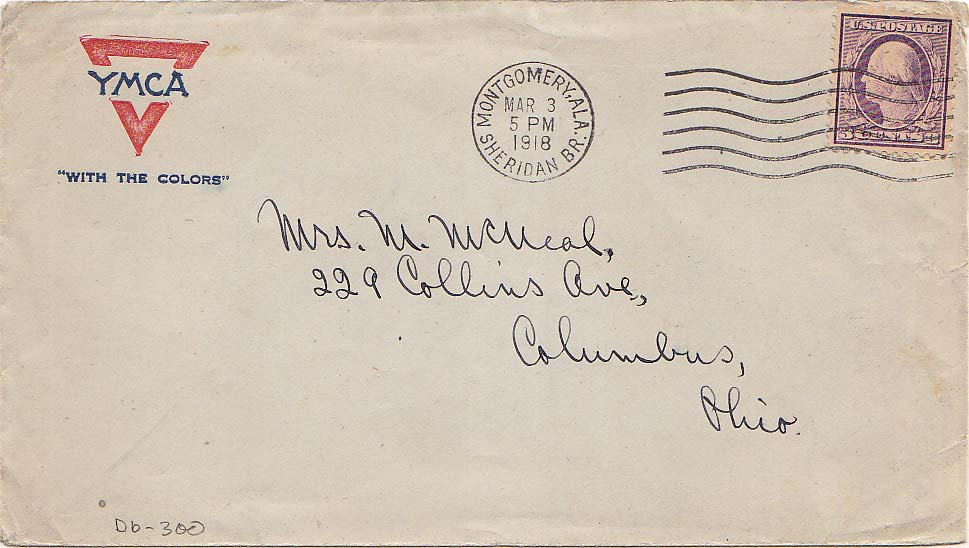 YMCA
"WITH THE COLORS"
MONTGOMERY, ALA.
MAR 3
5 PM
1918
SHERIDAN BR.
U.S. POSTAGE
3 CENTS 3
Mrs. M. McNeal,
229 Collins Ave,
Columbus,
Ohio.
Db-300